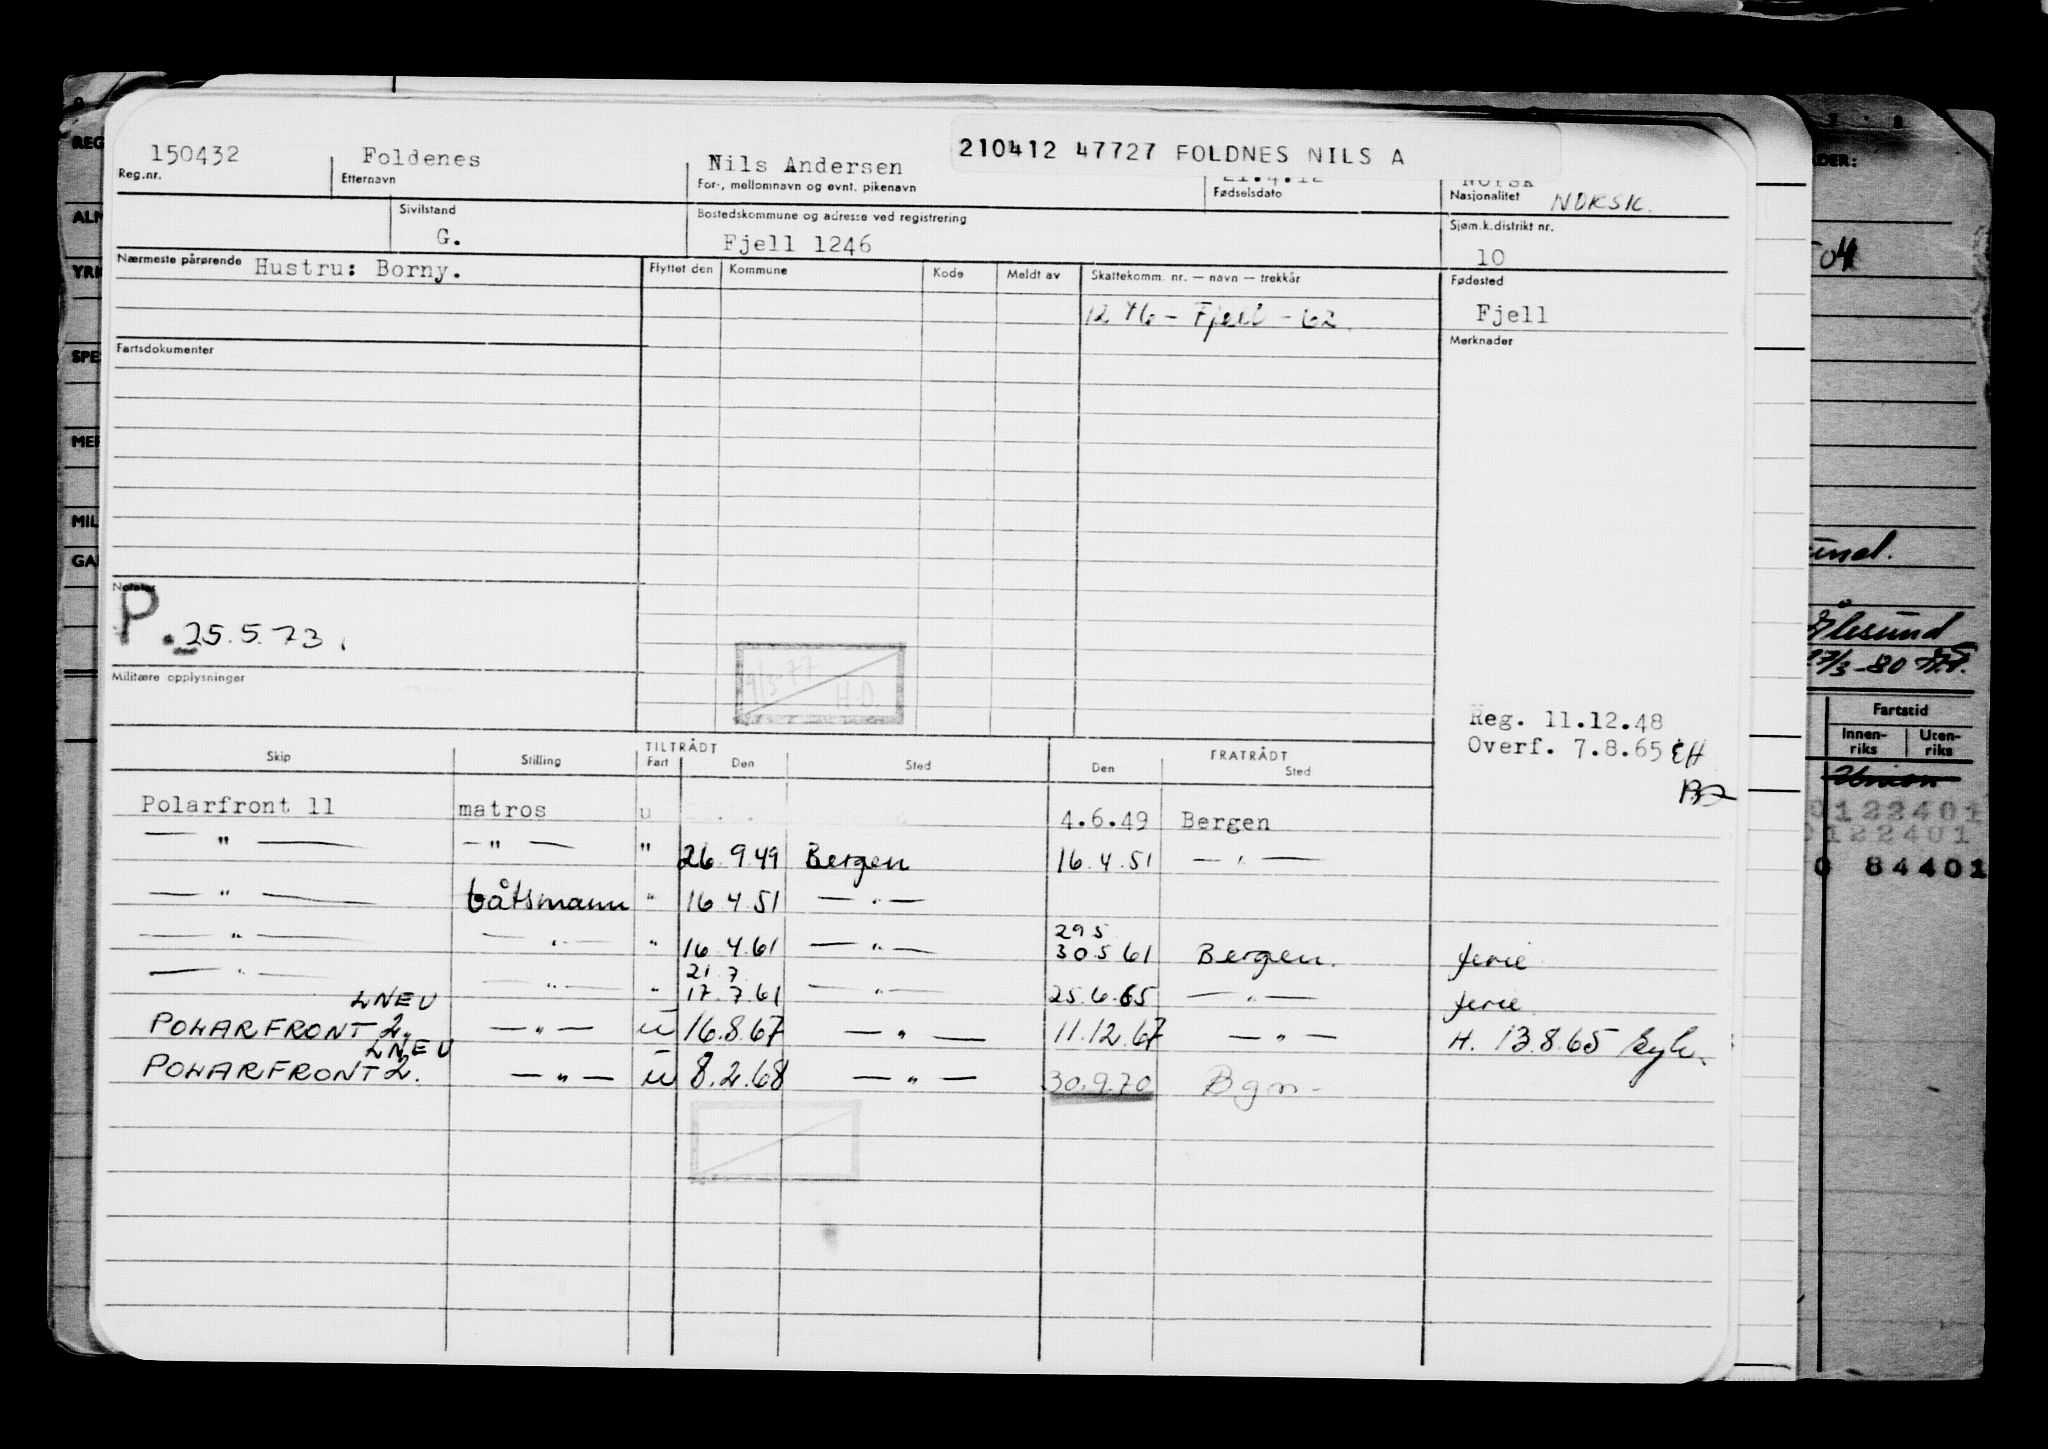 210412 47727 FOLDNES NILS A
150432 Foldenes Nils Andersen 21.4.12 Norsk
Reg.nr. Etternavn For-, mellomnavn og evnt. pikenavn Fødselsdato Nasjonalitet NORSK.
Sivilstand Bostedskommune og adresse ved registrering Sjøm.k.distrikt nr.
G. Fjell 1246 10
Nærmeste pårørende Hustru: Borny. Flyttet den Kommune Kode Meldt av Skattekomm. nr. — navn — trekkår Fødested
1246 - Fjell - 62. Fjell
Fartsdokumenter Merknader
Notater
P. 25.5.73.
9/5 77
H.D.
Militære opplysninger
Reg. 11.12.48
Overf. 7.8.65 EH
TILTRÅDT FRATRÅDT
Skip Stilling Fart Den Sted Den Sted
Polarfront 11 matros u 4.6.49 Bergen
— " — — " — " 26.9.49 Bergen 16.4.51 — " —
— " — båtsmann " 16.4.51 — " —
29 5
— " — — " — " 16.4.61 — " — 30.5 61 Bergen. ferie
21. 7
— " — — " — " 17.7.61 — " — 25.6.65 — " — ferie
LNEU
POLARFRONT 2. — " — u 16.8.67 — " — 11.12.67 — " — H. 13.8.65
LNEU
POLARFRONT 2. — " — u 8.2.68 — " — 30.9.70 Bgn-
REG
ALM
YRK
SPE
MER
MIL
GA
04
und.
Ålesund
27/3-80
Fartstid
Innen-
riks Uten-
riks
0122401
0122401
0 84401